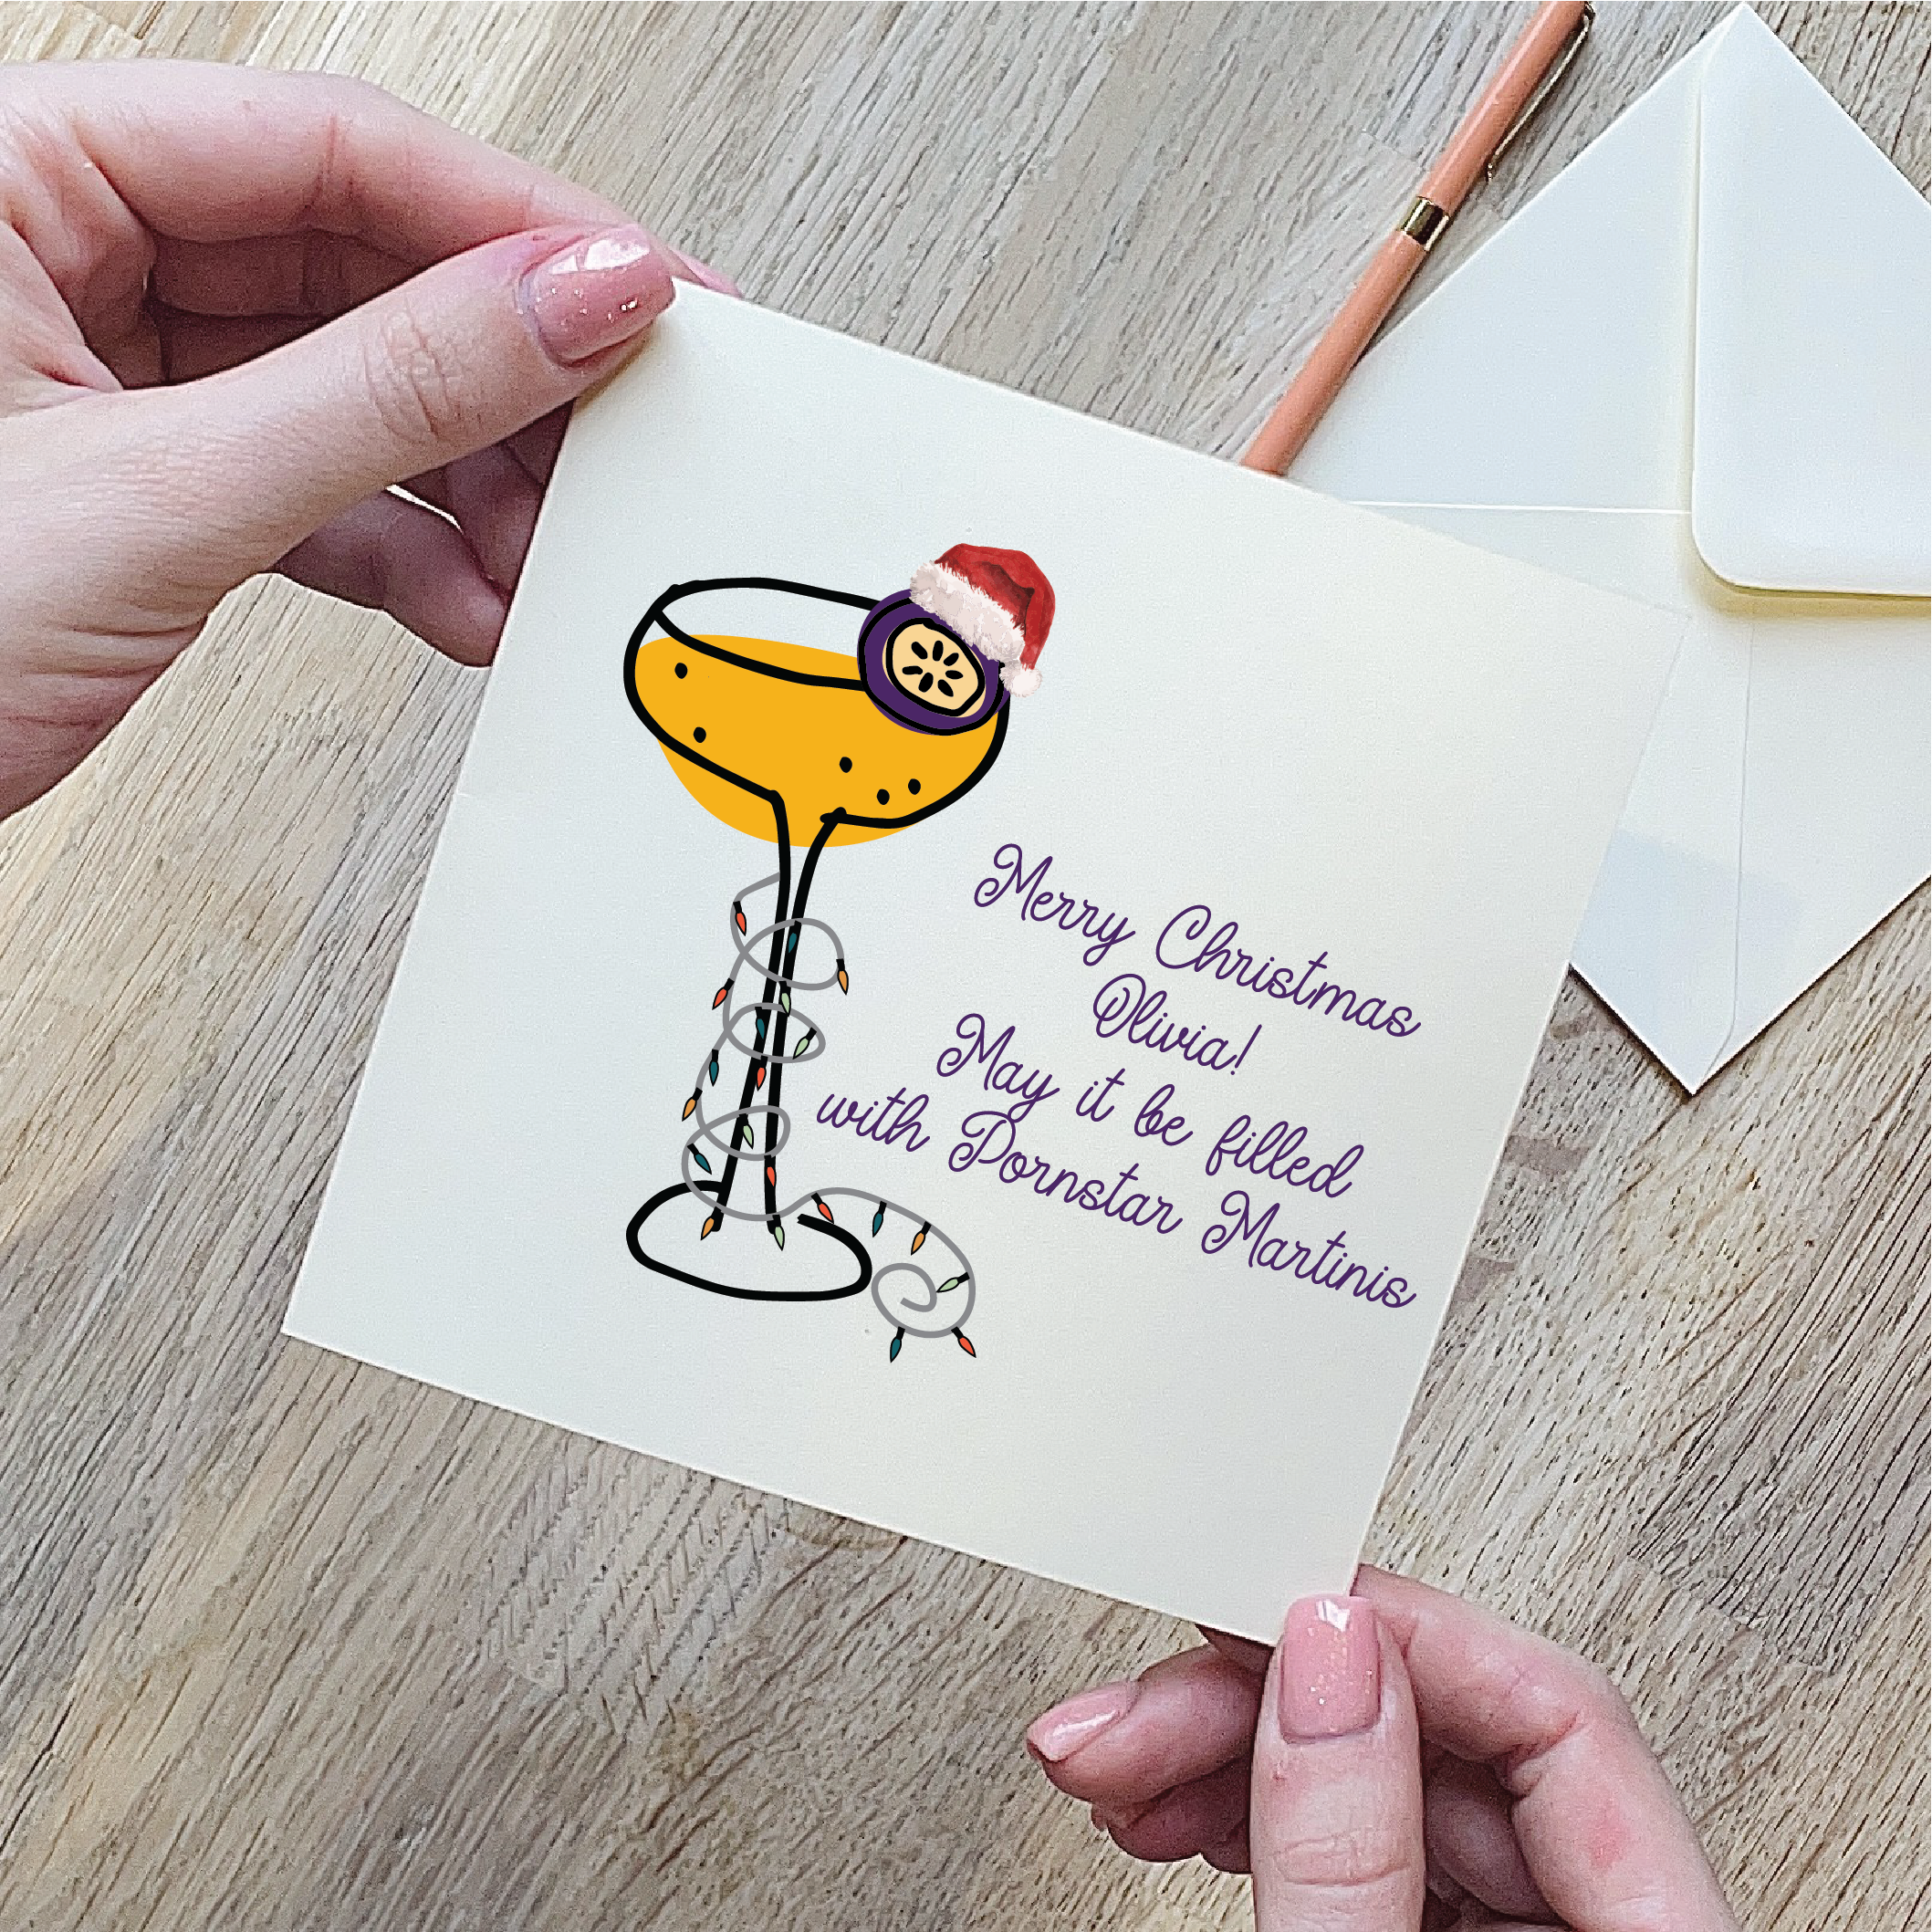 Merry Christmas
Olivia!
May it be filled
with Pornstar Martinis